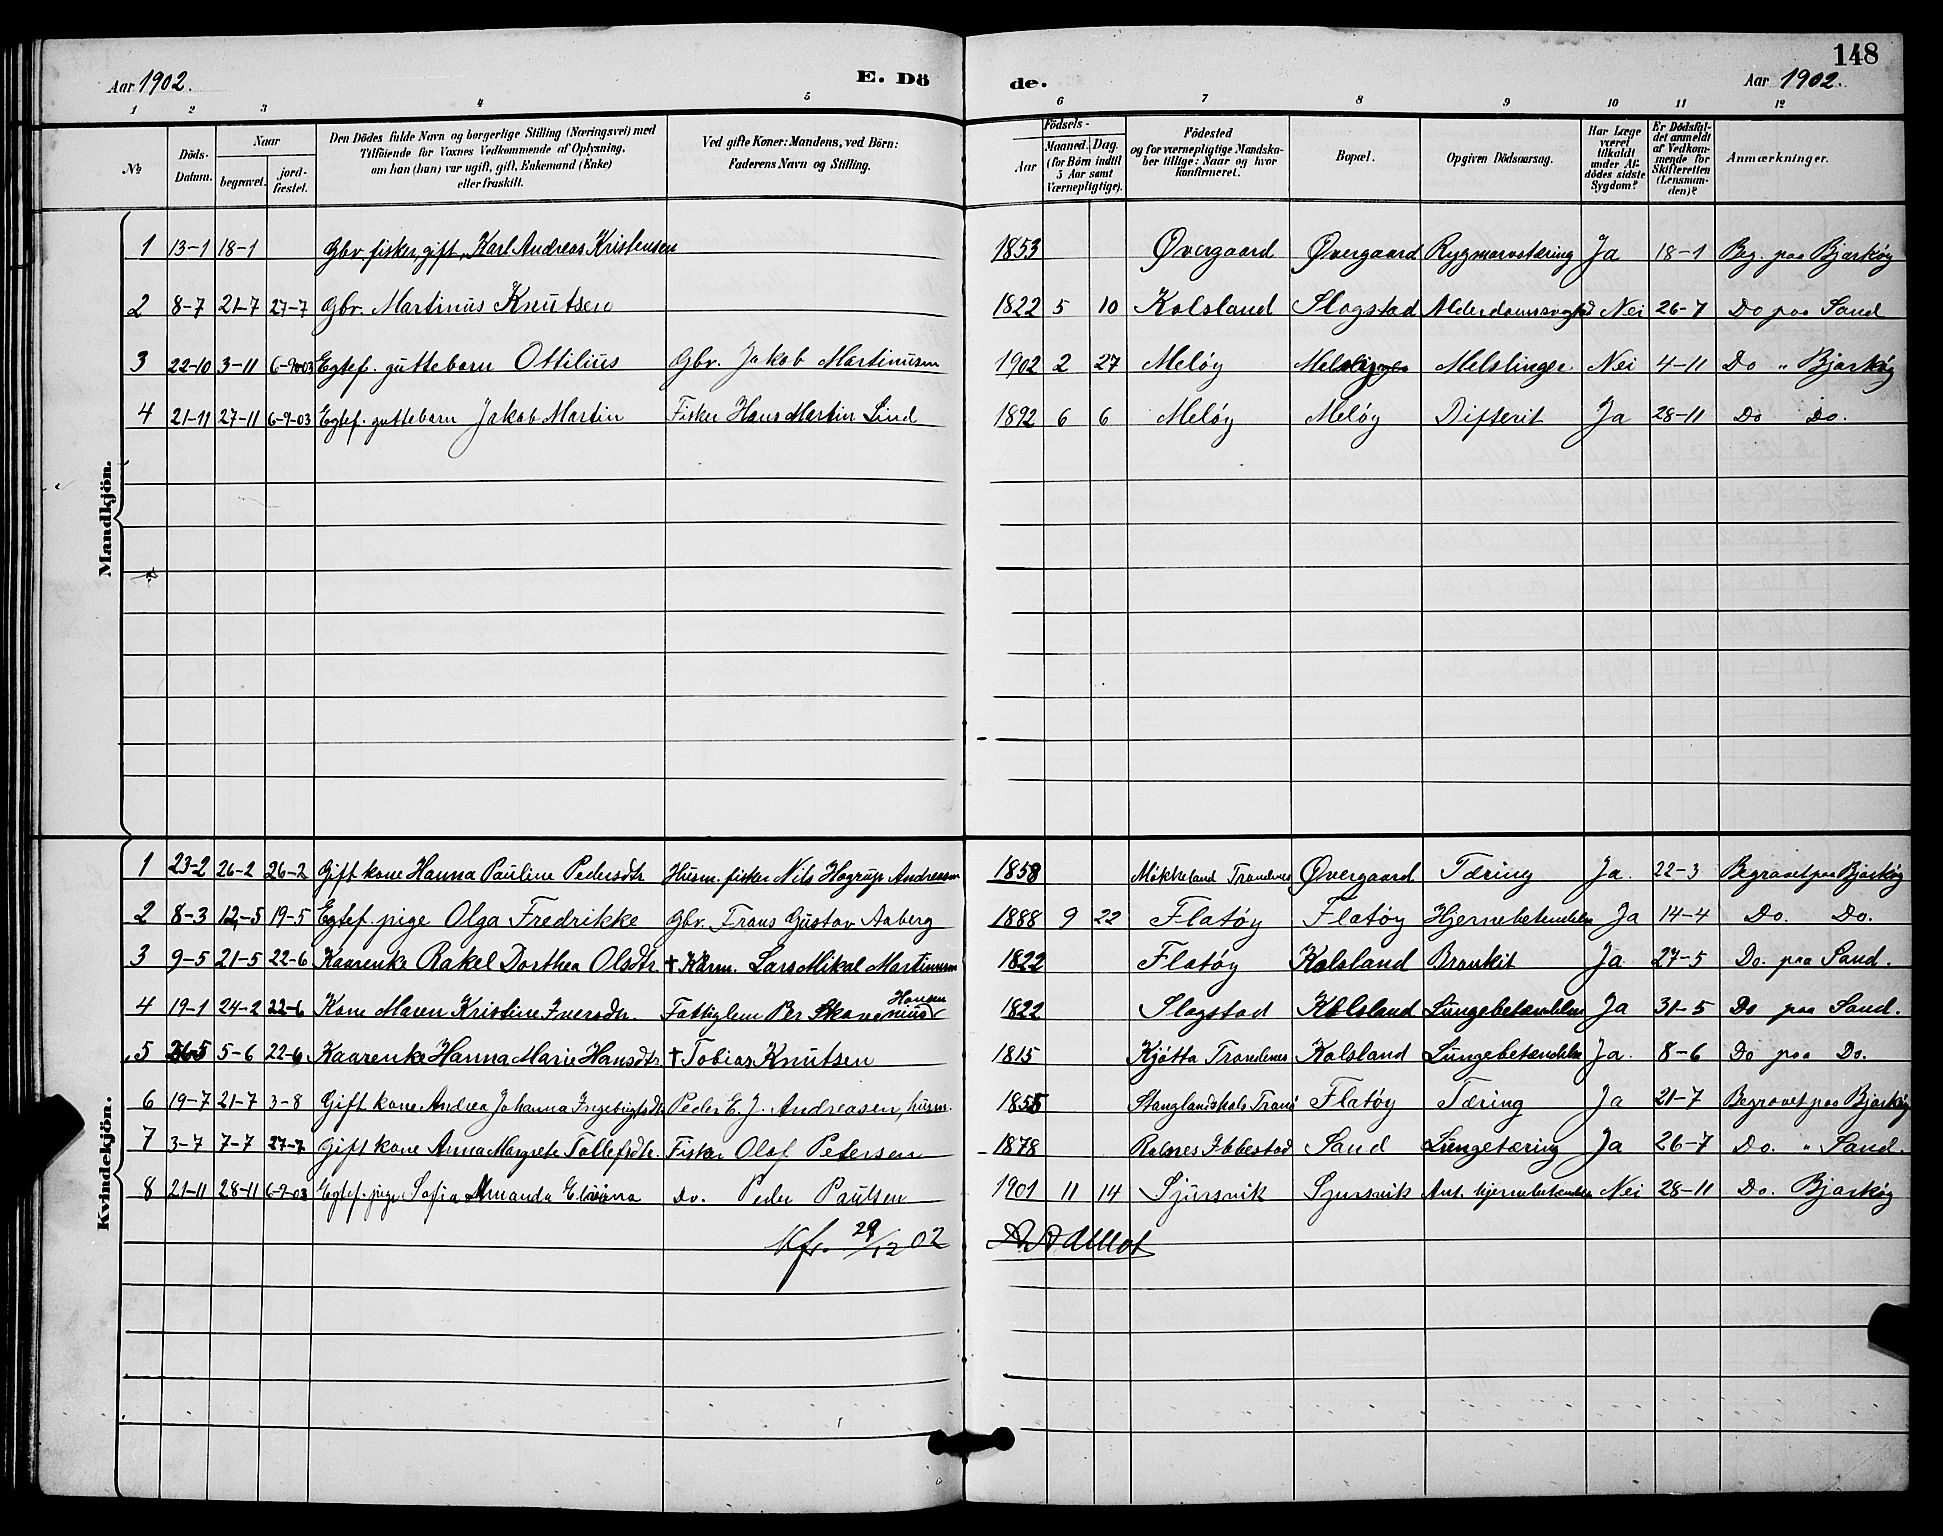 148
Aar 1902. E. Dö de. Aar 1902.
1 2 3 4 5 6 7 8 9 10 11 12
№ Döds-Datum. Naar begravet. jord-fæstet. Den Dödes fulde Navn og borgerlige Stilling (Næringsvei) med Tilföiende for Voxnes Vedkommende af Oplysning, om han (hun) var ugift, gift, Enkemand (Enke) eller fraskilt. Ved gifte Koner: Mandens, ved Börn: Faderens Navn og Stilling. Födsels- Aar Maaned. Dag. (for Börn indtil 5 Aar samt Værnepligtige). Födested og for værnepligtige Mandska-ber tillige: Naar og hvor konfirmeret. Bopæl. Opgiven Dödsaarsag. Har Læge været tilkaldt under Af-dödes sidste Sygdom? Er Dödsfal-det anmeldt af Vedkom-mende for Skifteretten (Lensman-den)? Anmærkninger.
Mandkjön.
1 13-1 18-1 Gbr. fisker, gift, Karl Andreas Kristensen 1853 Øvergaard Øvergaard Rygmarvstæring Ja 18-1 Beg. paa Bjarkøy
2 8-7 21-7 27-7 Gbr. Martinus Knutsen 1822 5 10 Kolsland Slagstad Alderdomssvaghed Nei 26-7 Do paa Sand
3 22-10 3-11 6-9-03 Egtef. guttebarn Ottilius Gbr. Jakob Martinusen 1902 2 27 Meløy Nei 4-11 Do " Bjarkøy
4 21-11 27-11 6-9-03 Egtef. guttebarn Jakob Martin Fisker Hans Martin Lind 1892 6 6 Meløy Meløy Difterit Ja 28-11 Do Do.
Kvindekjön.
1 23-2 26-2 26-2 Gift kone Hanna Pauline Pedersdtr Husm. fisker Nils Hagrup Andreasen 1858 Trondenes Øvergaard Tæring Ja. 22-3 Begravet paa Bjarkøy
2 8-3 12-5 19-5 Egtef. pige Olga Fredrikke Gbr. Frans Gustav Aaberg 1888 9 22 Flatøy Flatøy Hjernebetændelse Ja 14-4 Do. Do.
3 9-5 21-5 22-6 Kaarenke Rakel Dorthea Olsdtr. † Kårm. Lars Mikal Martinusen 1822 Flatøy Kolsland Bronkit Ja 27-5 Do. paa Sand.
4 19-1 24-2 22-6 Kone Maren Kristine Iversdtr. Fattiglem Per Hansen 1822 Slagstad Kolsland Lungebetændelse Ja 31-5 Do paa Sand.
5 26-5 5-6 22-6 Kaarenke Hanna Marie Hansdtr. † Tobias Knutsen 1815 Kjøtta Trondenes Kolsland Lungebetændelse Ja. 8-6 Do paa Do.
6 19-7 21-7 3-8 Gift kone Andrea Johanna Ingebrigtsdtr Peder E. J. Andreasen, husm. 1855 Flatøy Tæring Ja 21-7 Begravet paa Bjarkøy
7 3-7 7-7 27-7 Gift kone Anna Margrete Tollefsdtr. Fisker Olaf Petersen 1878 Rolsnes Ibbestad Sand Lungetæring Ja 26-7 Do. " Sand.
8 21-11 28-11 6-9-03 Egtef. pige Sofia Amanda Do. Peder Paulsen 1901 11 14 Sjursvik Sjursvik Ant. hjernebetændelse Nei 28-11 Do. Bjarkøy
Kfr. 29/12 02